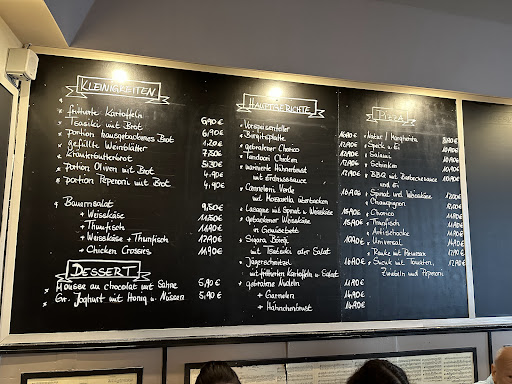 KLEINIGKEITEN
* frittierte Kartoffeln
* Tsatsiki mit Brot 6,90€
* Portion hausgebackenes Brot 6,90€
* gefüllte Weinblätter 1,20€
* Kräuterbutterbrot 7,50€
* Portion Oliven mit Brot 5,30€
* Portion Peperoni mit Brot 4,90€
4,90€
* Bauernsalat 9,50€
+ Weisskäse 11,50€
+ Thunfisch 11,40€
+ Weisskäse + Thunfisch 12,90€
+ Chicken Crossies 11,90€
DESSERT
* Mousse au chocolat mit Sahne 5,90€
* Gr. Joghurt mit Honig u. Nüssen 5,90€
HAUPTGERICHTE
* Vorspeisenteller
* Birgitsplatte
* gebratener Chorico
* Tandoori Chicken
* marinierte Hühnerbrust
mit Erdnusssauce
* Canneloni Verde
mit Mozzarella überbacken
* Lasagne mit Spinat u. Weisskäse
* gebackener Weisskäse
in Gemüsebett
* Sigara Böregi
mit Tsatsiki oder Salat
* Jägerschnitzel
mit frittierten Kartoffeln u. Salat
* gebratene Nudeln 11,90€
+ Garnelen 14,90€
+ Hähnchenbrust 14,90€
PIZZA
* Natur / Margherita
* Speck u. Ei
* Salami
* Schinken
* BBQ mit Barbecuesauce
und Ei
* Spinat und Weisskäse
* Champignon
* Chorico
* Thunfisch
* Artischocke
* Universal
* Raute mit Parmesan
* Sucuk mit Tomaten,
Zwiebeln und Peperoni